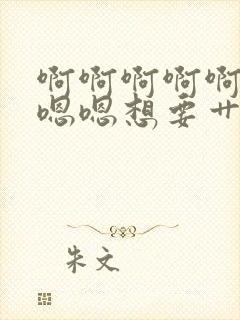 啊啊啊啊啊
嗯嗯想要艹
朱文